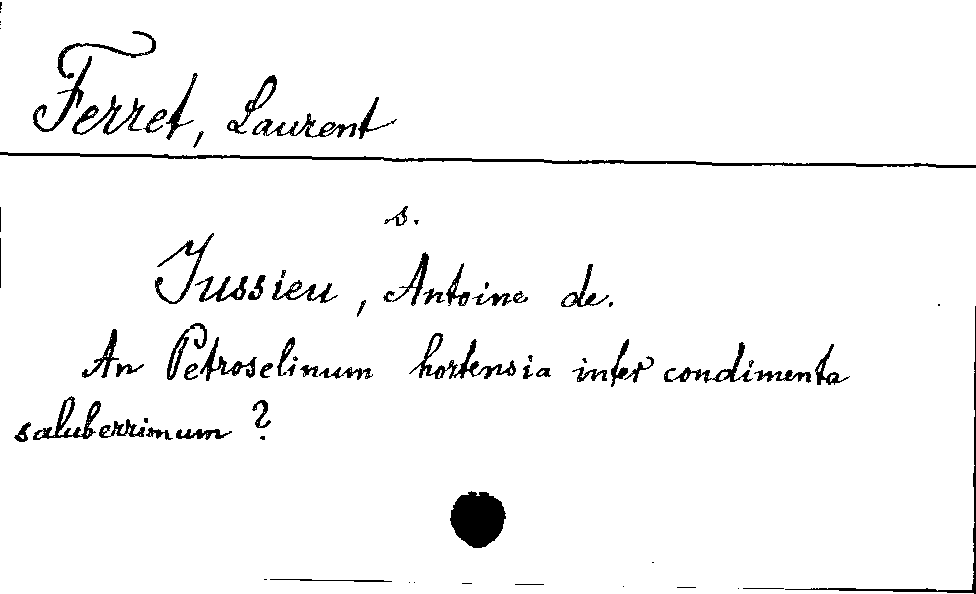 Ferret, Laurent
s.
Jussieu, Antoine de.
An Petroselinum hortensia inter condimenta
saluberrimum?